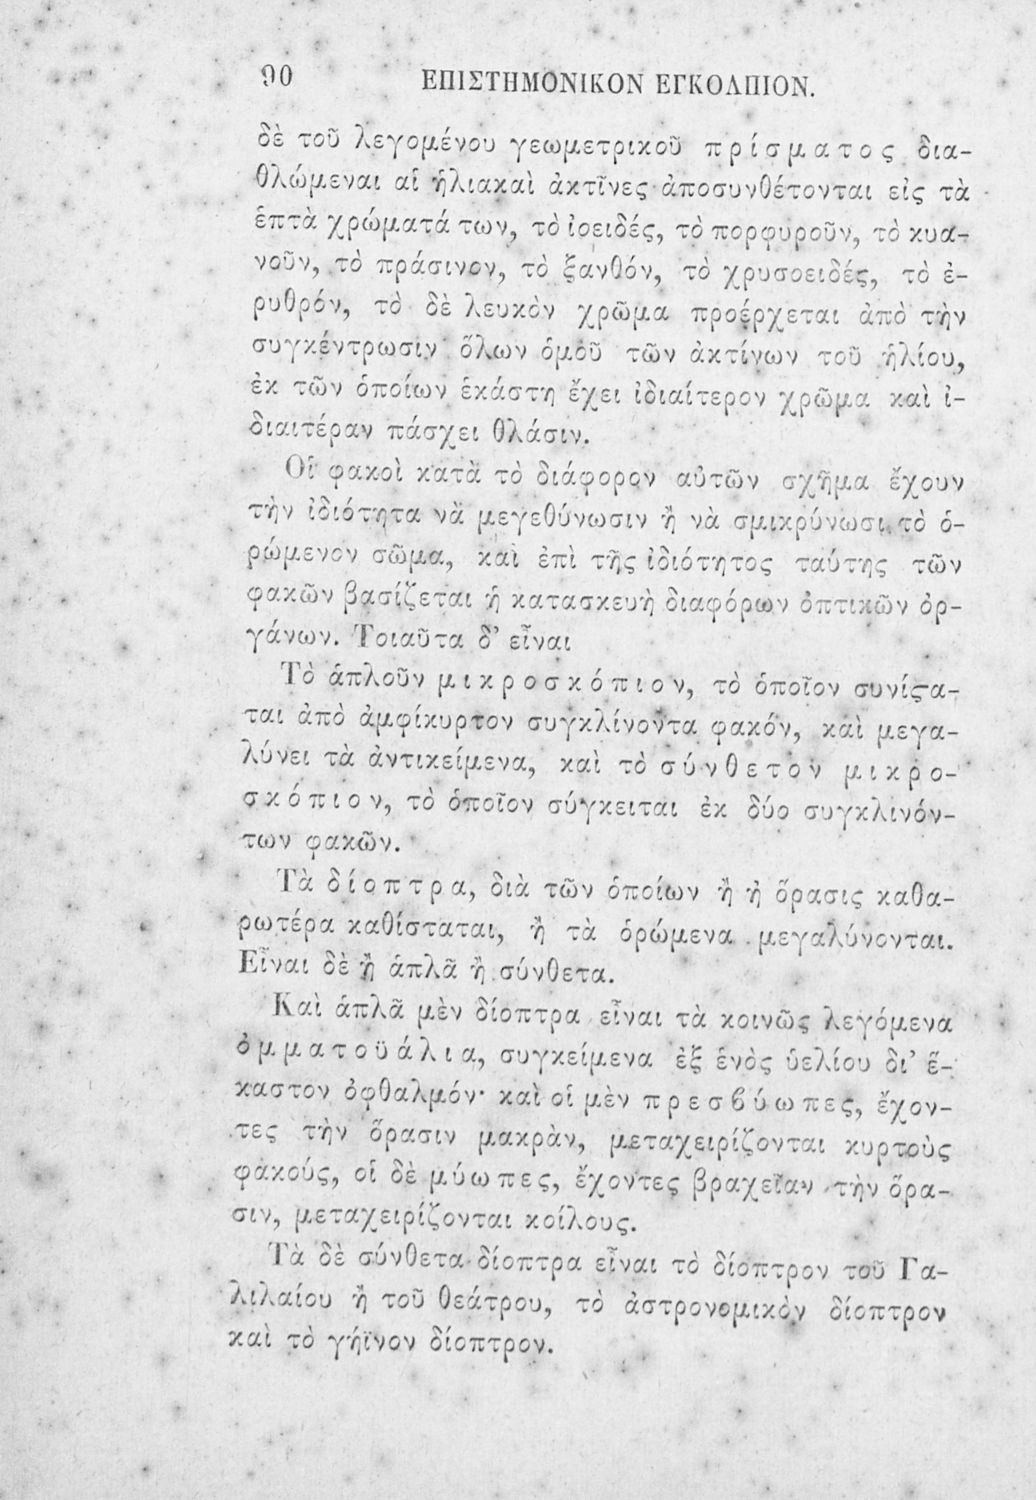 90 ΕΠΙΣΤΗΜΟΝΙΚΟΝ ΕΓΚΟΛΠΙΟΝ.
δὲ τοῦ λεγομένου γεωμετρικοῦ πρίσματος δια-
θλώμεναι αἱ ἡλιακαὶ ἀκτῖνες ἀποσυνθέτονται εἰς τὰ
ἑπτὰ χρώματά των, τὸ ἰοειδές, τὸ πορφυροῦν, τὸ κυα-
νοῦν, τὸ πράσινον, τὸ ξανθόν, τὸ χρυσοειδές, τὸ ἐ-
ρυθρόν, τὸ δὲ λευκὸν χρῶμα προέρχεται ἀπὸ τὴν
συγκέντρωσιν ὅλων ὁμοῦ τῶν ἀκτίνων τοῦ ἡλίου,
ἐκ τῶν ὁποίων ἑκάστη ἔχει ἰδιαίτερον χρῶμα καὶ ἰ-
διαιτέραν πάσχει θλάσιν.
Οἱ φακοὶ κατὰ τὸ διάφορον αὑτῶν σχῆμα ἔχουν
τὴν ἰδιότητα νὰ μεγεθύνωσιν ἢ νὰ σμικρύνωσι τὸ ὁ-
ρώμενον σῶμα, καὶ ἐπὶ τῆς ἰδιότητος ταύτης τῶν
φακῶν βασίζεται ἡ κατασκευὴ διαφόρων ὀπτικῶν ὀρ-
γάνων. Τοιαῦτα δ’ εἶναι
Τὸ ἁπλοῦν μικροσκόπιον, τὸ ὁποῖον συνίϛα-
ται ἀπὸ ἀμφίκυρτον συγκλίνοντα φακόν, καὶ μεγα-
λύνει τὰ ἀντικείμενα, καὶ τὸ σύνθετον μικρο-
σκόπιον, τὸ ὁποῖον σύγκειται ἐκ δύο συγκλινόν-
των φακῶν.
Τὰ δίοπτρα, διὰ τῶν ὁποίων ἢ ἡ ὅρασις καθα-
ρωτέρα καθίσταται, ἢ τὰ ὁρώμενα μεγαλύνονται.
Εἶναι δὲ ἢ ἁπλᾶ ἢ σύνθετα.
Καὶ ἁπλᾶ μὲν δίοπτρα εἶναι τὰ κοινῶς λεγόμενα
ὀμματοϋάλια, συγκείμενα ἐξ ἑνὸς ὑελίου δι’ ἕ-
καστον ὀφθαλμόν· καὶ οἱ μὲν πρεσϐύωπες, ἔχον-
τες τὴν ὅρασιν μακρὰν, μεταχειρίζονται κυρτοὺς
φακούς, οἱ δὲ μύωπες, ἔχοντες βραχεῖαν τὴν ὅρα-
σιν, μεταχειρίζονται κοίλους.
Τὰ δὲ σύνθετα δίοπτρα εἶναι τὸ δίοπτρον τοῦ Γα-
λιλαίου ἢ τοῦ θεάτρου, τὸ ἀστρονομικὸν δίοπτρον
καὶ τὸ γήϊνον δίοπτρον.